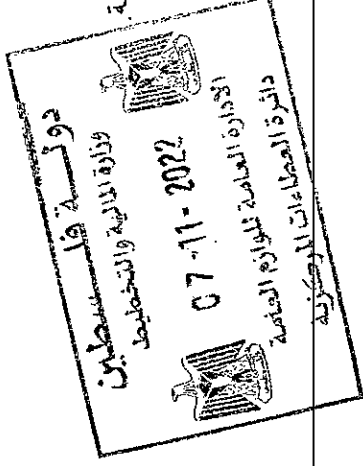 دولـــة فلـــسطين
وزارة المالية والتخطيط
07-11-2022
الادارة العامة للوازم العامة
دائرة العطاءات المركزية